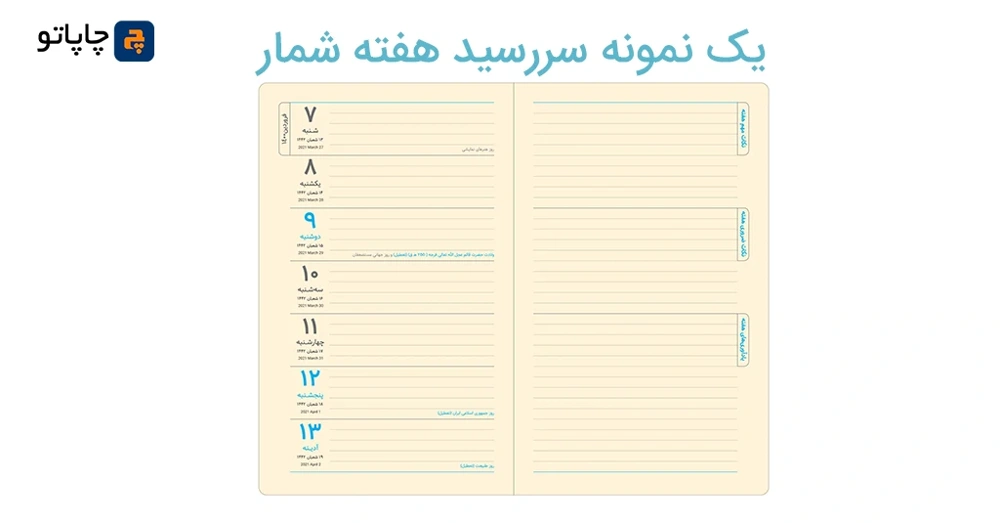 چاپاتو
یک نمونه سررسید هفته شمار
نکات مهم هفته
نکات ضروری هفته
یادآوری‌های هفته
فروردین ۱۴۰۰
۷
شنبه
۱۳ شعبان ۱۴۴۲
2021 March 27
روز هنرهای نمایشی
۸
یکشنبه
۱۴ شعبان ۱۴۴۲
2021 March 28
۹
دوشنبه
۱۵ شعبان ۱۴۴۲
2021 March 29
ولادت حضرت قائم عجل الله تعالی فرجه (۲۵۵ ه ق) (تعطیل) و روز جهانی مستضعفان
۱۰
سه‌شنبه
۱۶ شعبان ۱۴۴۲
2021 March 30
۱۱
چهارشنبه
۱۷ شعبان ۱۴۴۲
2021 March 31
۱۲
پنجشنبه
۱۸ شعبان ۱۴۴۲
2021 April 1
روز جمهوری اسلامی ایران (تعطیل)
۱۳
آدینه
۱۹ شعبان ۱۴۴۲
2021 April 2
روز طبیعت (تعطیل)